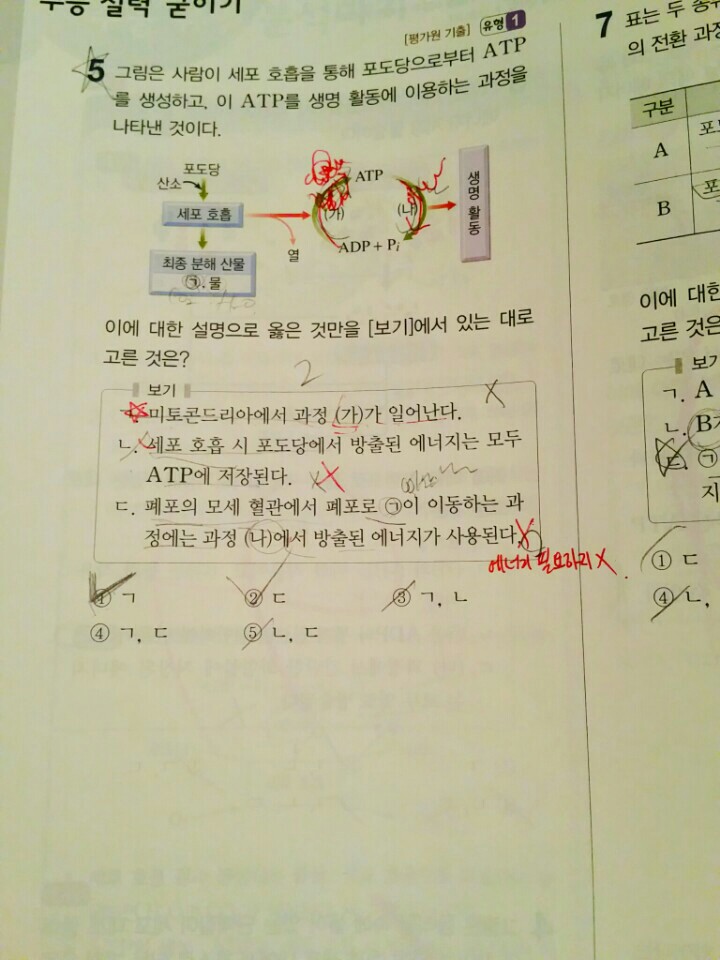 수능 실력 굳히기
[평가원 기출] 유형 1
5 그림은 사람이 세포 호흡을 통해 포도당으로부터 ATP
를 생성하고, 이 ATP를 생명 활동에 이용하는 과정을
나타낸 것이다.
포도당
산소
세포 호흡
최종 분해 산물
㉠, 물
열
(가)
ATP
ADP + Pi
(나)
생명 활동
이에 대한 설명으로 옳은 것만을 [보기]에서 있는 대로
고른 것은?
2
보기
미토콘드리아에서 과정 (가)가 일어난다.
ㄴ. 세포 호흡 시 포도당에서 방출된 에너지는 모두
ATP에 저장된다.
ㄷ. 폐포의 모세 혈관에서 폐포로 ㉠이 이동하는 과
정에는 과정 (나)에서 방출된 에너지가 사용된다.
에너지 필요하지 X.
① ㄱ ② ㄷ ③ ㄱ, ㄴ
④ ㄱ, ㄷ ⑤ ㄴ, ㄷ
7 표는 두 종류
의 전환 과정
구분
A 포
B 포
이에 대한
고른 것은?
보기
ㄱ. A
ㄴ. B
ㄷ. ㉠
지
① ㄷ
④ ㄴ,